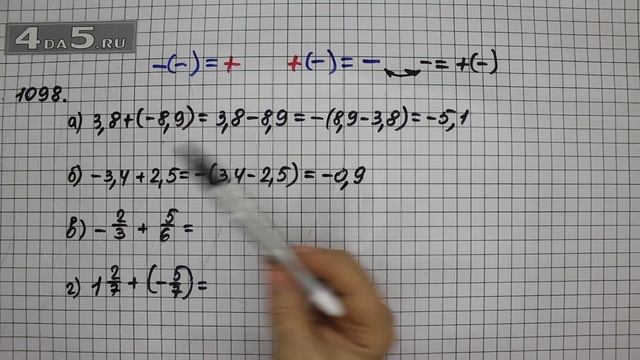 4DA5.RU
-(-) = +   +(-) = -   - = +(-)
1098.
а) 3,8+(-8,9) = 3,8-8,9 = -(8,9-3,8) = -5,1
б) -3,4+2,5 = -(3,4-2,5) = -0,9
в) -2/3 + 5/6 =
г) 1 2/7 + (-5/7) =